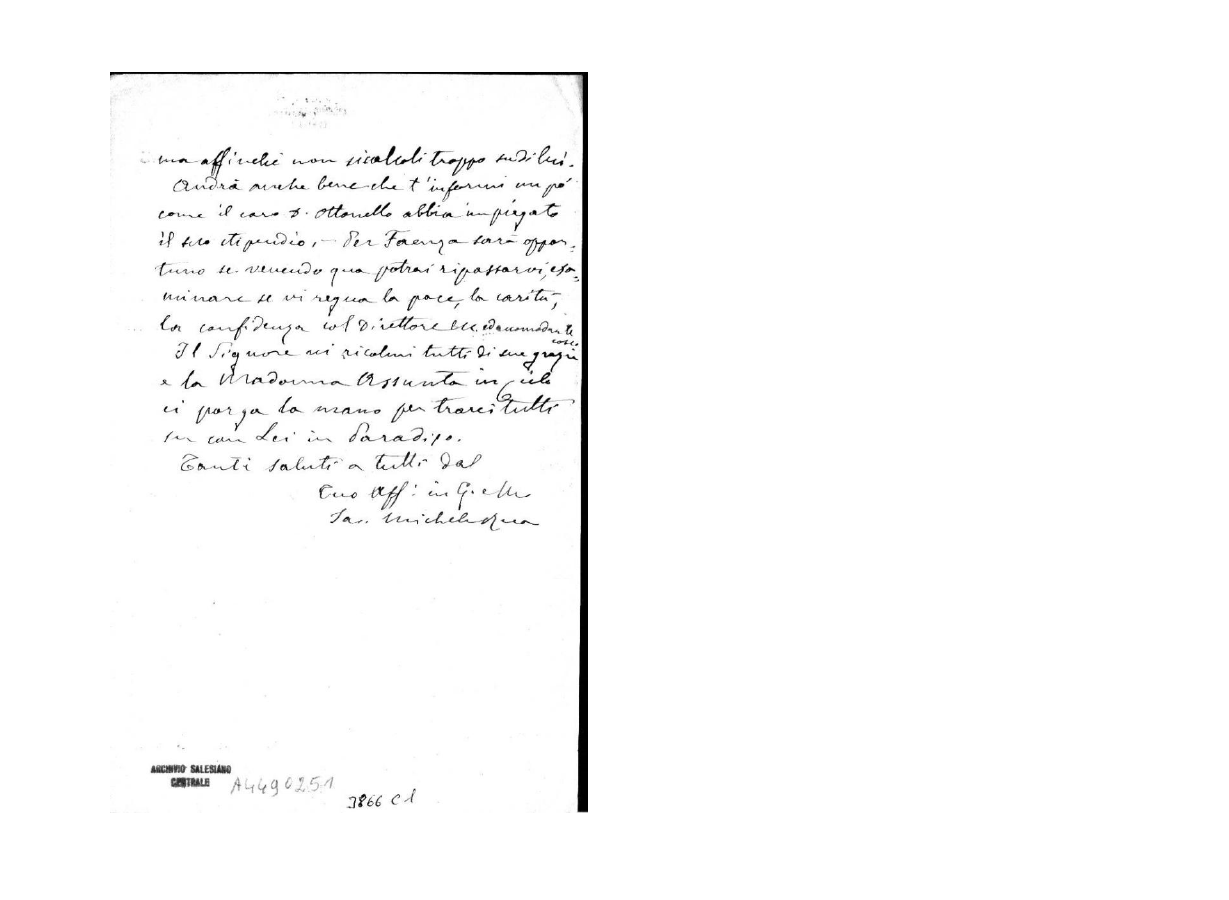 ma affinchè non si calcoli troppo su di lui.
Andrà anche bene che t'informi un pò
come il caro D. Ottonello abbia impiegato
il suo stipendio. – Per Faenza sarà oppor-
tuno se venendo qua potrai ripassarvi, esa-
minare se vi regna la pace, la carità,
la confidenza col Direttore ecc. ed accomodare le
cose
Il Signore ci ricolmi tutti di sue grazie
e la Madonna Assunta in Cielo
ci porga la mano per trarci tutti
su con Lei in Paradiso.
Tanti saluti a tutti dal
Tuo Aff. in G. e M.
Sac. Michele Rua
ARCHIVIO SALESIANO
CENTRALE
A4490251
3866 C1